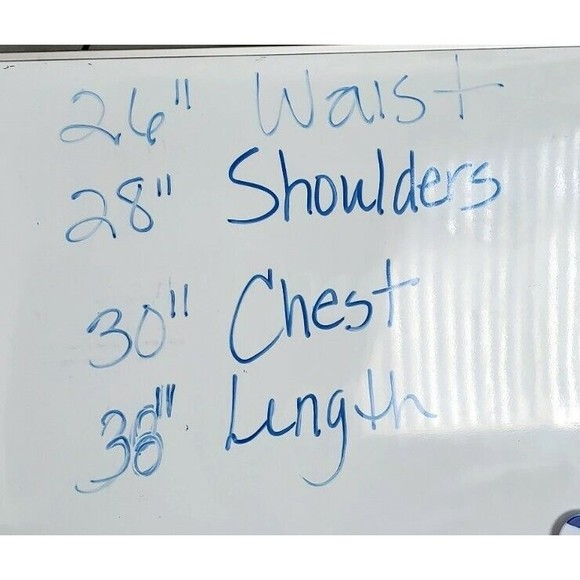 26" Waist
28" Shoulders
30" Chest
38" Length